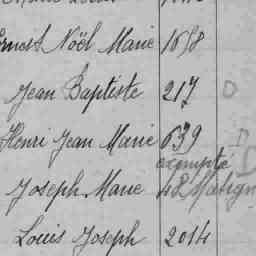 Ernest Noël Marie 1658
Jean Baptiste 217 D
Henri Jean Marie 639 D
exempté
Joseph Marie 42 Matign
Louis Joseph 2014